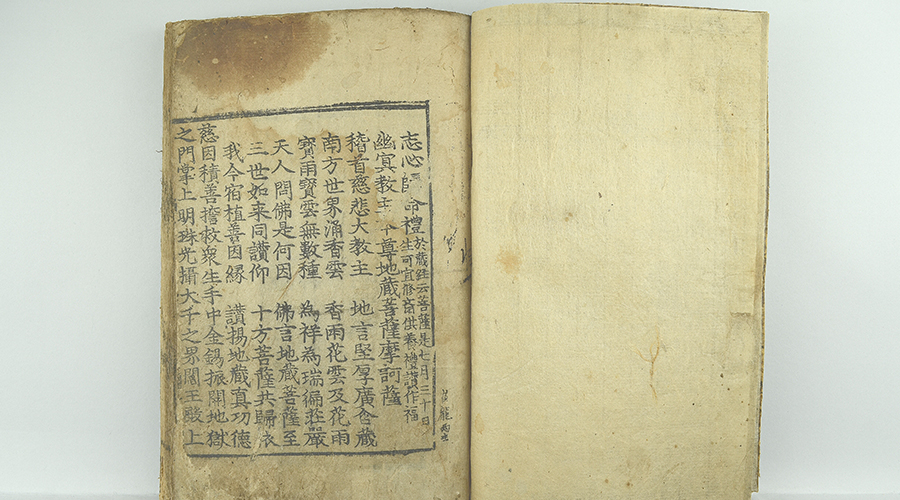 志心歸命禮 於藏經云菩薩是七月三十日
生可宜修齋供養禮讃作福
幽冥教主 尊地藏菩薩摩訶薩
稽首慈悲大教主 地言堅厚廣含藏
南方世界涌香雲 香雨花雲及花雨
寶雨寶雲無數種 為祥為瑞徧莊嚴
天人問佛是何因 佛言地藏菩薩至
三世如来同讃仰 十方菩薩共歸依
我今宿植善因緣 讃揚地藏真功德
慈因積善誓救衆生手中金錫振開地獄
之門掌上明珠光攝大千之界閻王殿上